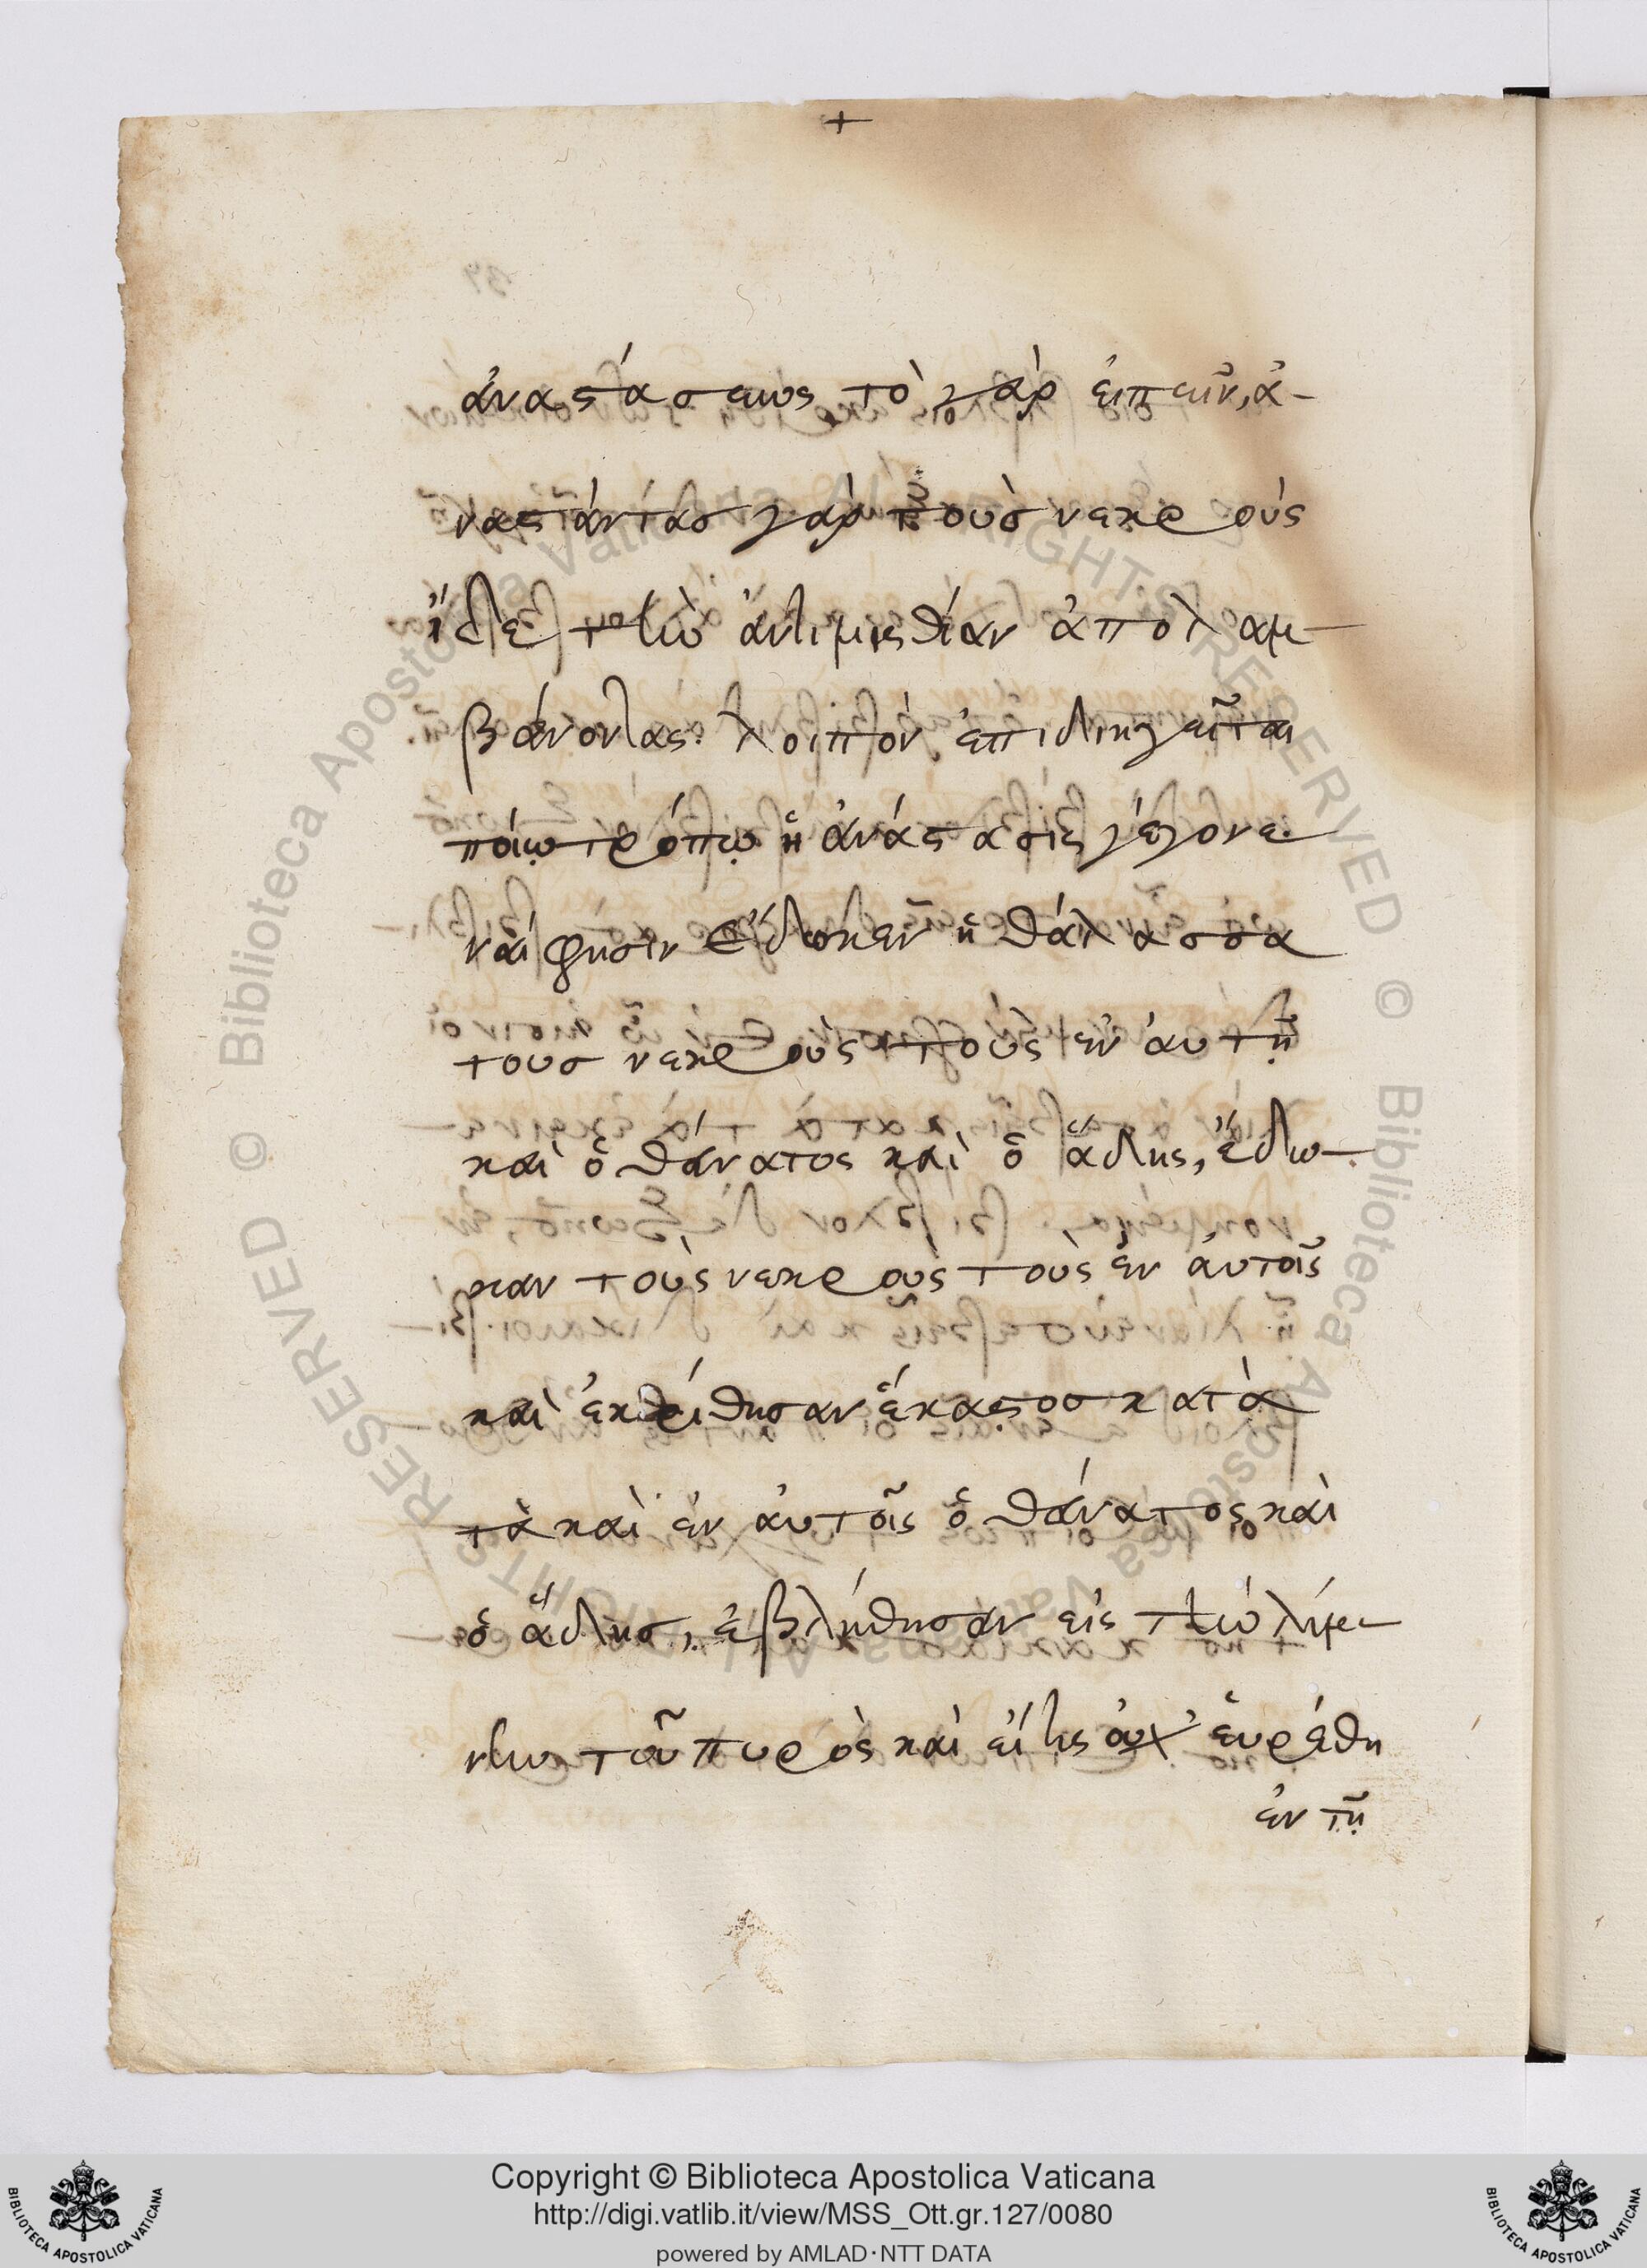 +
ἀναστάσεως τὸ γὰρ εἰπεῖν, ἀ-
ναστάντασ γὰρ τοὺσ νεκρούς
ἴδε τὴν ἀντιμισθίαν ἀπολαμ-
βάνοντας. λοιπὸν ἐπιδιηγεῖται
ποίῳ τρόπῳ ἡ ἀνάστασις γέγονε.
ναί φησιν ἔδωκεν ἡ θάλασσα
τουσ νεκροὺς τοὺς ἐν αὐτῇ
καὶ ὁ θάνατος καὶ ὁ ἅδης, ἔδω-
καν τοὺς νεκροὺς τοὺς ἐν αὐτοῖς
καὶ ἐκρίθησαν ἕκαστοσ κατὰ
τὰ καὶ ἐν αὐτοῖς ὁ θάνατος καὶ
ὁ ἅδησ, ἐβλήθησαν εἰς τὴν λίμ-
νην τοῦ πυρὸς καὶ εἴ τις οὐχ' εὑρέθη
ἐν τῇ
Copyright © Biblioteca Apostolica Vaticana
http://digi.vatlib.it/view/MSS_Ott.gr.127/0080
powered by AMLAD·NTT DATA
BIBLIOTECA APOSTOLICA VATICANA
BIBLIOTECA APOSTOLICA VATICANA